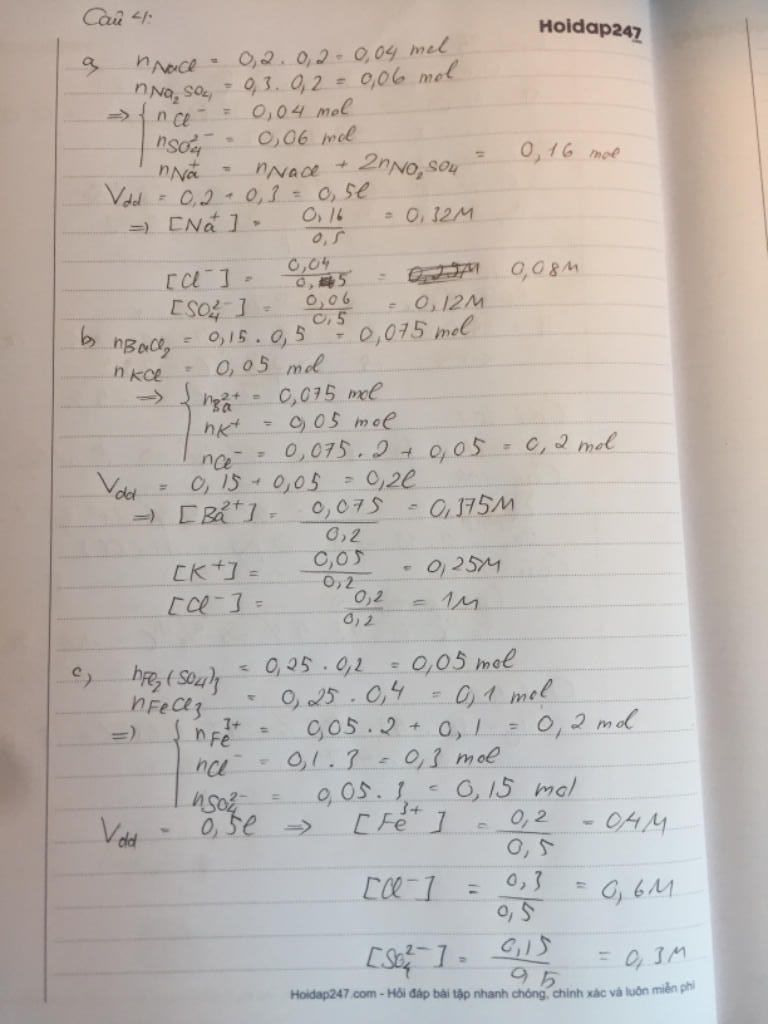 Câu 4:
Hoidap247
a, nNaCl = 0,2 . 0,2 = 0,04 mol
nNa2SO4 = 0,3 . 0,2 = 0,06 mol
=> { nCl⁻ = 0,04 mol
nSO4²⁻ = 0,06 mol
nNa⁺ = nNaCl + 2nNO2SO4 = 0,16 mol
Vdd = 0,2 + 0,3 = 0,5l
=> [Na⁺] = 0,16/0,5 = 0,32M
[Cl⁻] = 0,04/0,5 = 0,08M
[SO4²⁻] = 0,06/0,5 = 0,12M
b, nBaCl2 = 0,15 . 0,5 = 0,075 mol
nKCl = 0,05 mol
=> { nBa²⁺ = 0,075 mol
nK⁺ = 0,05 mol
nCl⁻ = 0,075 . 2 + 0,05 = 0,2 mol
Vdd = 0,15 + 0,05 = 0,2l
=> [Ba²⁺] = 0,075/0,2 = 0,375M
[K⁺] = 0,05/0,2 = 0,25M
[Cl⁻] = 0,2/0,2 = 1M
c, nFe2(SO4)3 = 0,25 . 0,2 = 0,05 mol
nFeCl3 = 0,25 . 0,4 = 0,1 mol
=> { nFe³⁺ = 0,05 . 2 + 0,1 = 0,2 mol
nCl⁻ = 0,1 . 3 = 0,3 mol
nSO4²⁻ = 0,05 . 3 = 0,15 mol
Vdd = 0,5l => [Fe³⁺] = 0,2/0,5 = 0,4M
[Cl⁻] = 0,3/0,5 = 0,6M
[SO4²⁻] = 0,15/0,5 = 0,3M
Hoidap247.com - Hỏi đáp bài tập nhanh chóng, chính xác và luôn miễn phí